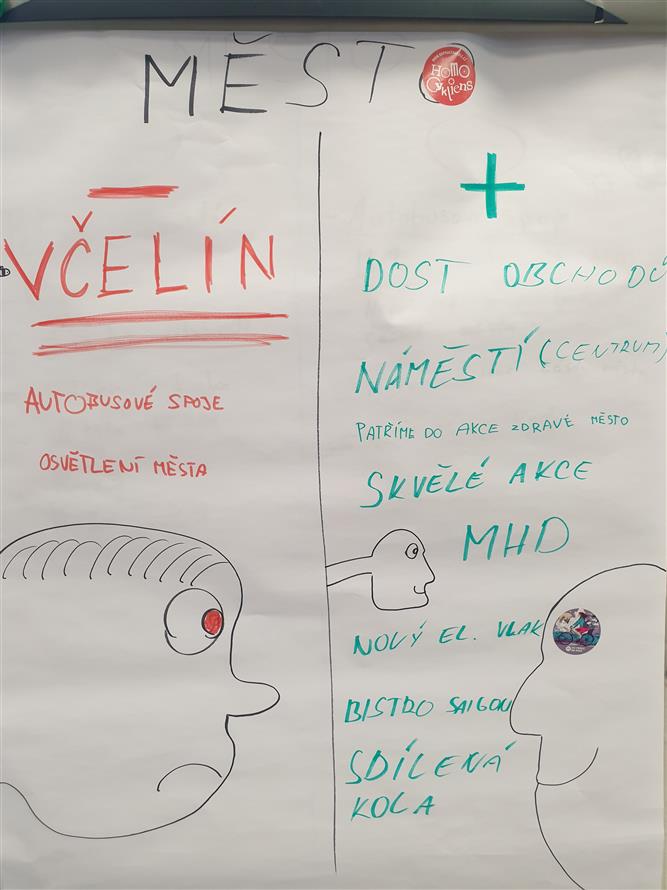 MĚSTO
HOMO
CYKLIENS
−
VČELÍN
AUTOBUSOVÉ SPOJE
OSVĚTLENÍ MĚSTA
+
DOST OBCHODŮ
NÁMĚSTÍ (CENTRUM)
PATŘÍME DO AKCE ZDRAVÉ MĚSTO
SKVĚLÉ AKCE
MHD
NOVÝ EL. VLAK
BISTRO SAIGON
SDÍLENÁ
KOLA